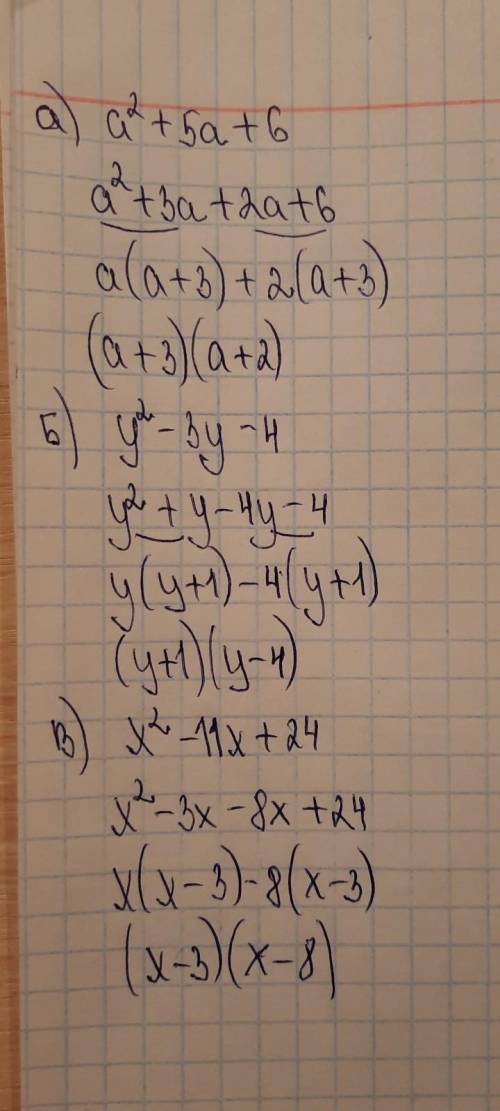 а) a² + 5a + 6
a² + 3a + 2a + 6
a(a+3) + 2(a+3)
(a+3)(a+2)
Б) y² - 3y - 4
y² + y - 4y - 4
y(y+1) - 4(y+1)
(y+1)(y-4)
В) x² - 11x + 24
x² - 3x - 8x + 24
x(x-3) - 8(x-3)
(x-3)(x-8)